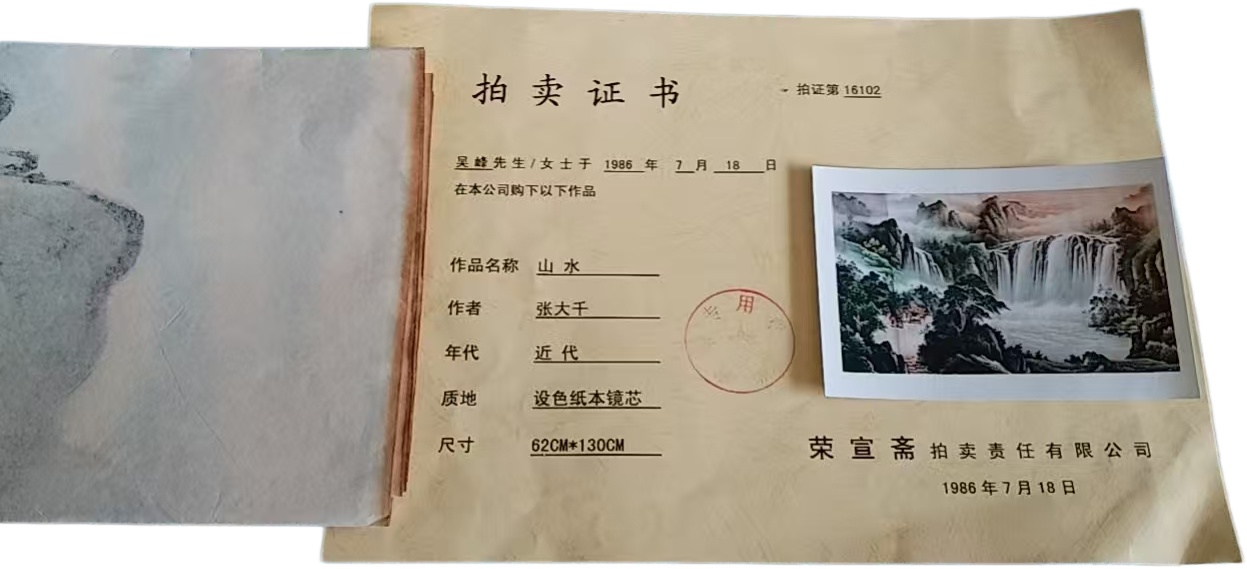 拍卖证书
拍证第 16102
吴峰先生/女士于 1986 年 7 月 18 日
在本公司购下以下作品
作品名称 山水
作者 张大千
年代 近代
质地 设色纸本镜芯
尺寸 62CM*130CM
用
荣宣斋拍卖责任有限公司
1986年7月18日